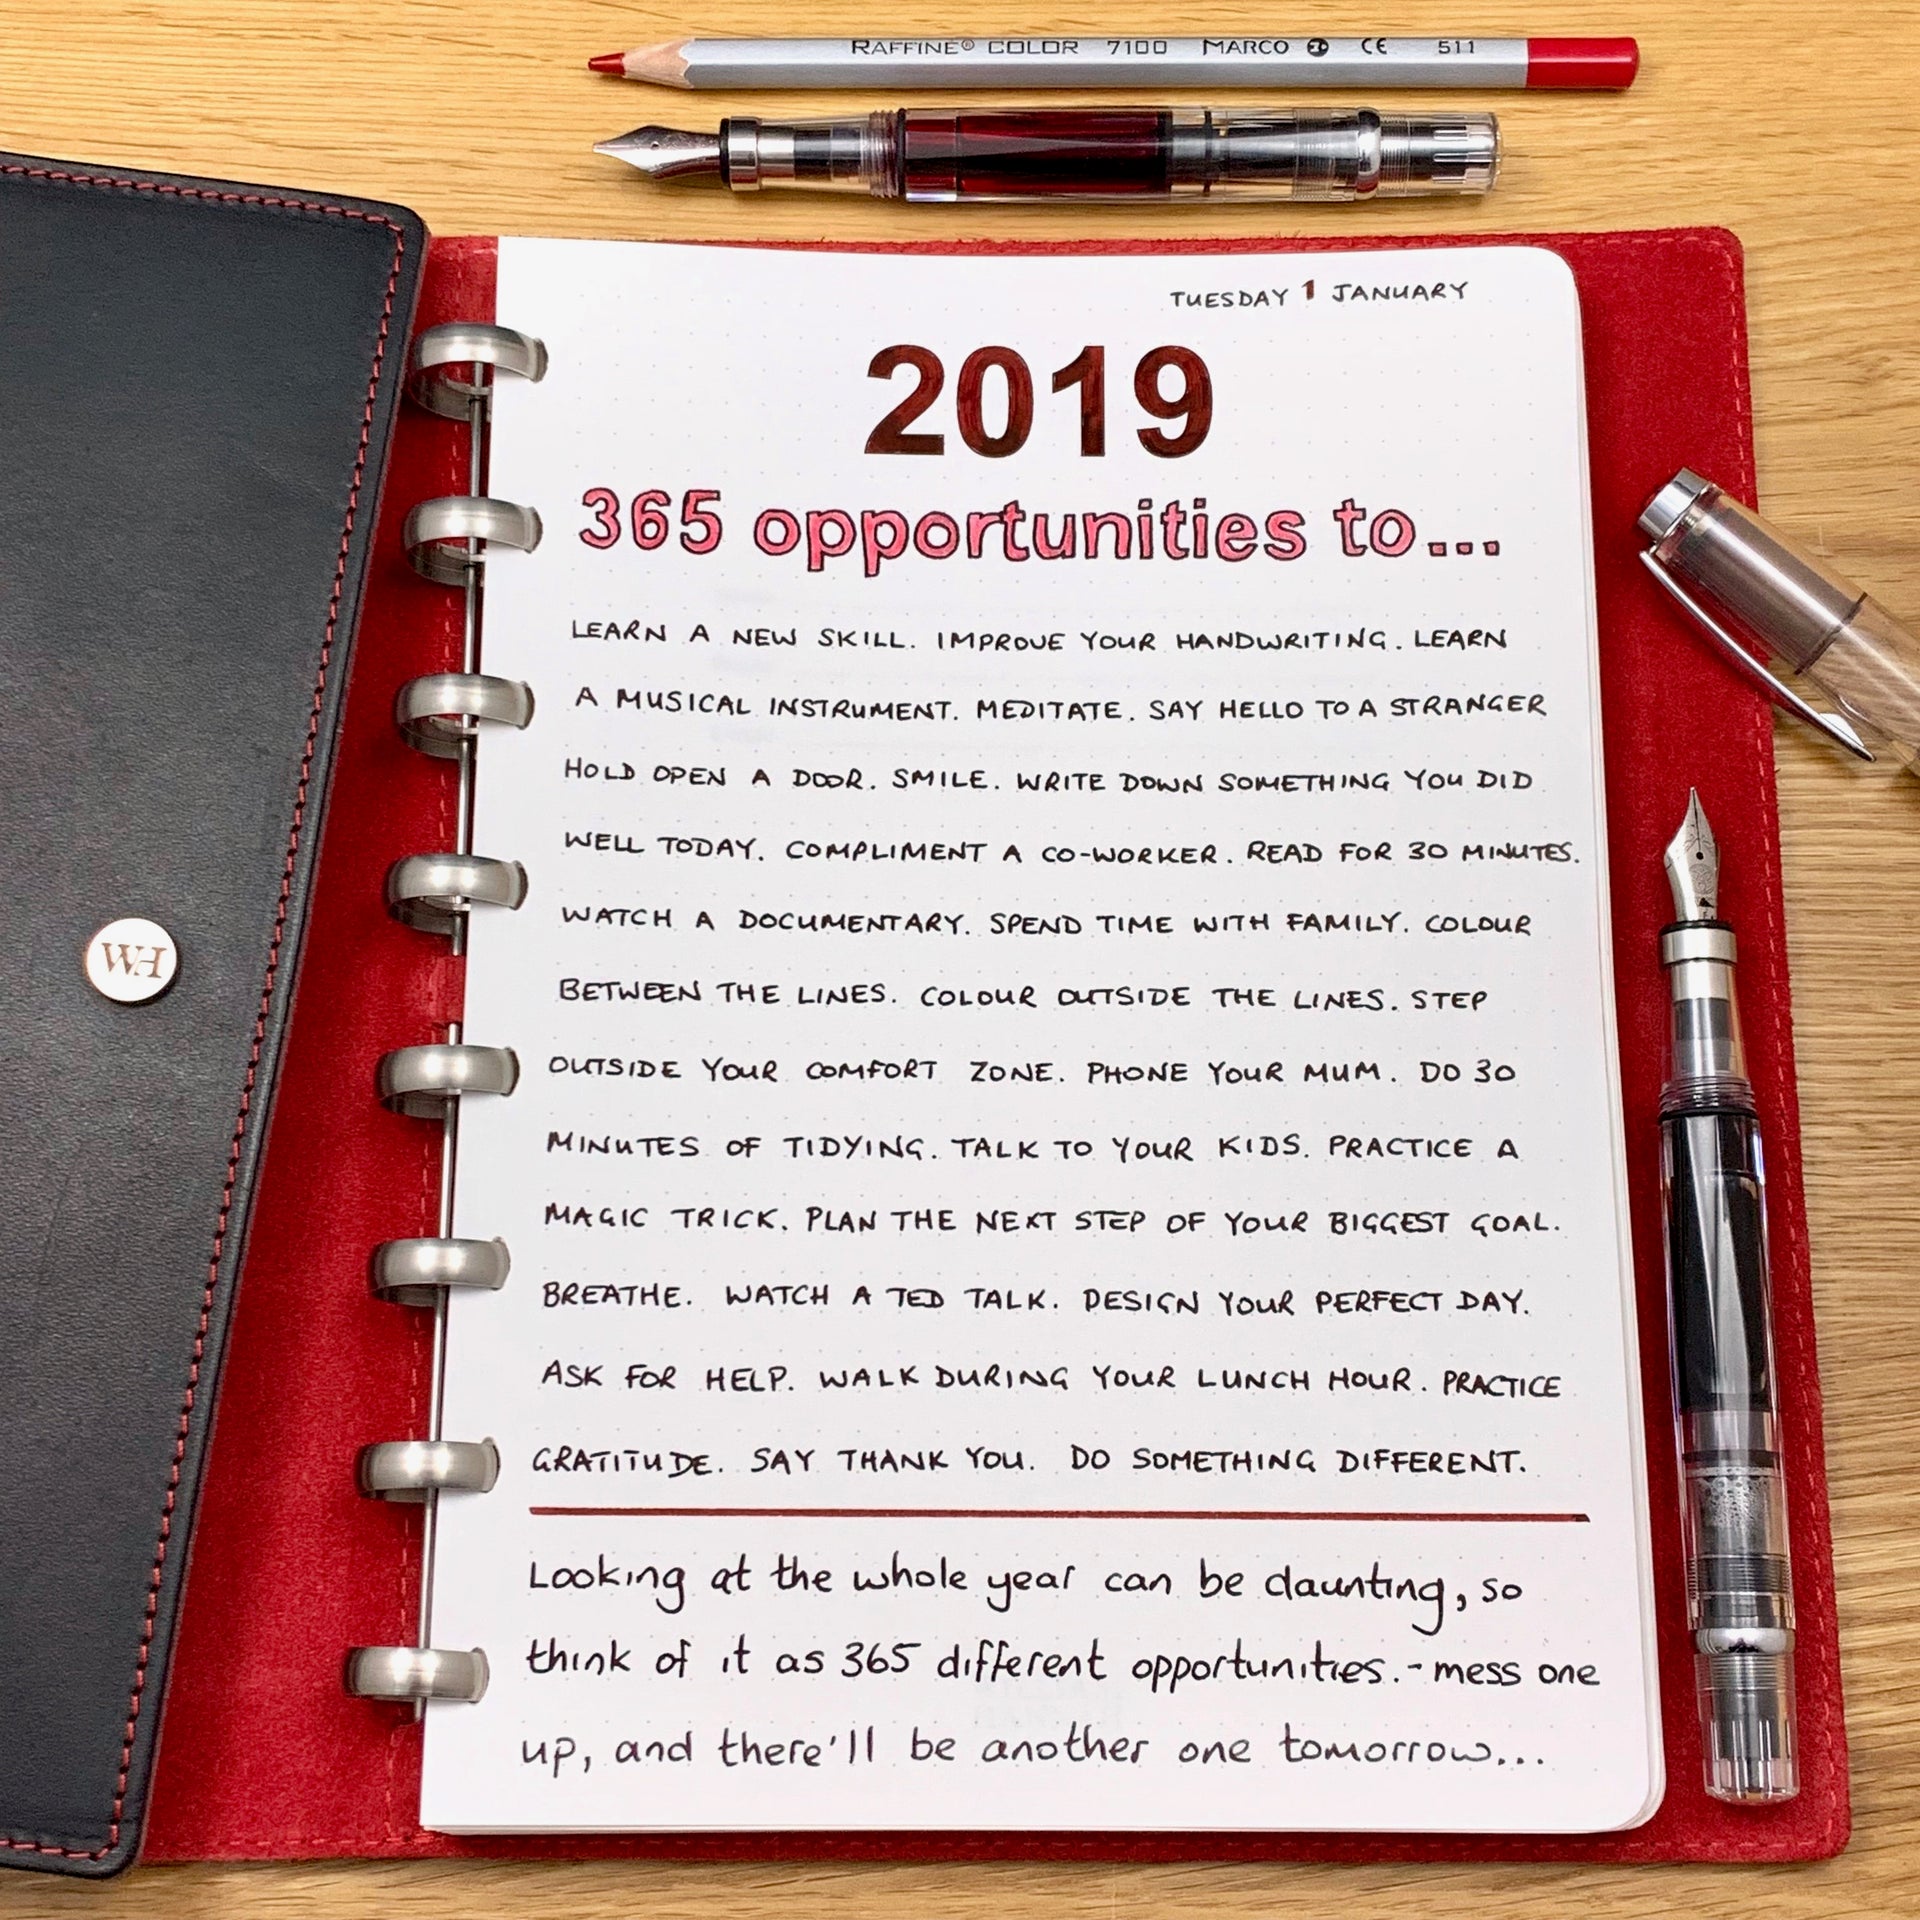 RAFFINÉ® COLOR 7100 MARCO CE 511
TUESDAY 1 JANUARY
2019
365 opportunities to...
LEARN A NEW SKILL. IMPROVE YOUR HANDWRITING. LEARN
A MUSICAL INSTRUMENT. MEDITATE. SAY HELLO TO A STRANGER
HOLD OPEN A DOOR. SMILE. WRITE DOWN SOMETHING YOU DID
WELL TODAY. COMPLIMENT A CO-WORKER. READ FOR 30 MINUTES.
WATCH A DOCUMENTARY. SPEND TIME WITH FAMILY. COLOUR
BETWEEN THE LINES. COLOUR OUTSIDE THE LINES. STEP
OUTSIDE YOUR COMFORT ZONE. PHONE YOUR MUM. DO 30
MINUTES OF TIDYING. TALK TO YOUR KIDS. PRACTICE A
MAGIC TRICK. PLAN THE NEXT STEP OF YOUR BIGGEST GOAL.
BREATHE. WATCH A TED TALK. DESIGN YOUR PERFECT DAY.
ASK FOR HELP. WALK DURING YOUR LUNCH HOUR. PRACTICE
GRATITUDE. SAY THANK YOU. DO SOMETHING DIFFERENT.
Looking at the whole year can be daunting, so
think of it as 365 different opportunities. - mess one
up, and there'll be another one tomorrow...
WH